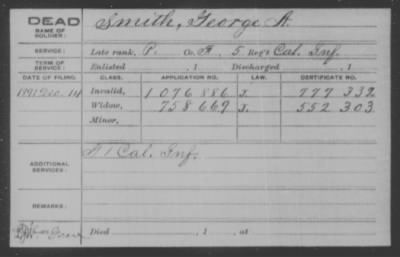 DEAD
NAME OF SOLDIER: Smith, George A.
SERVICE: Late rank, P. Co. F, 5 Reg't Cal. Inf.
TERM OF SERVICE: Enlisted , 1 Discharged , 1
DATE OF FILING. CLASS. APPLICATION NO. LAW. CERTIFICATE NO.
1891 Dec. 14 Invalid, 1 076 886 J. 777 332
Widow, 758 669 J. 552 303
Minor,
ADDITIONAL SERVICES: Cal. Inf.
REMARKS:
Died , 1 , at